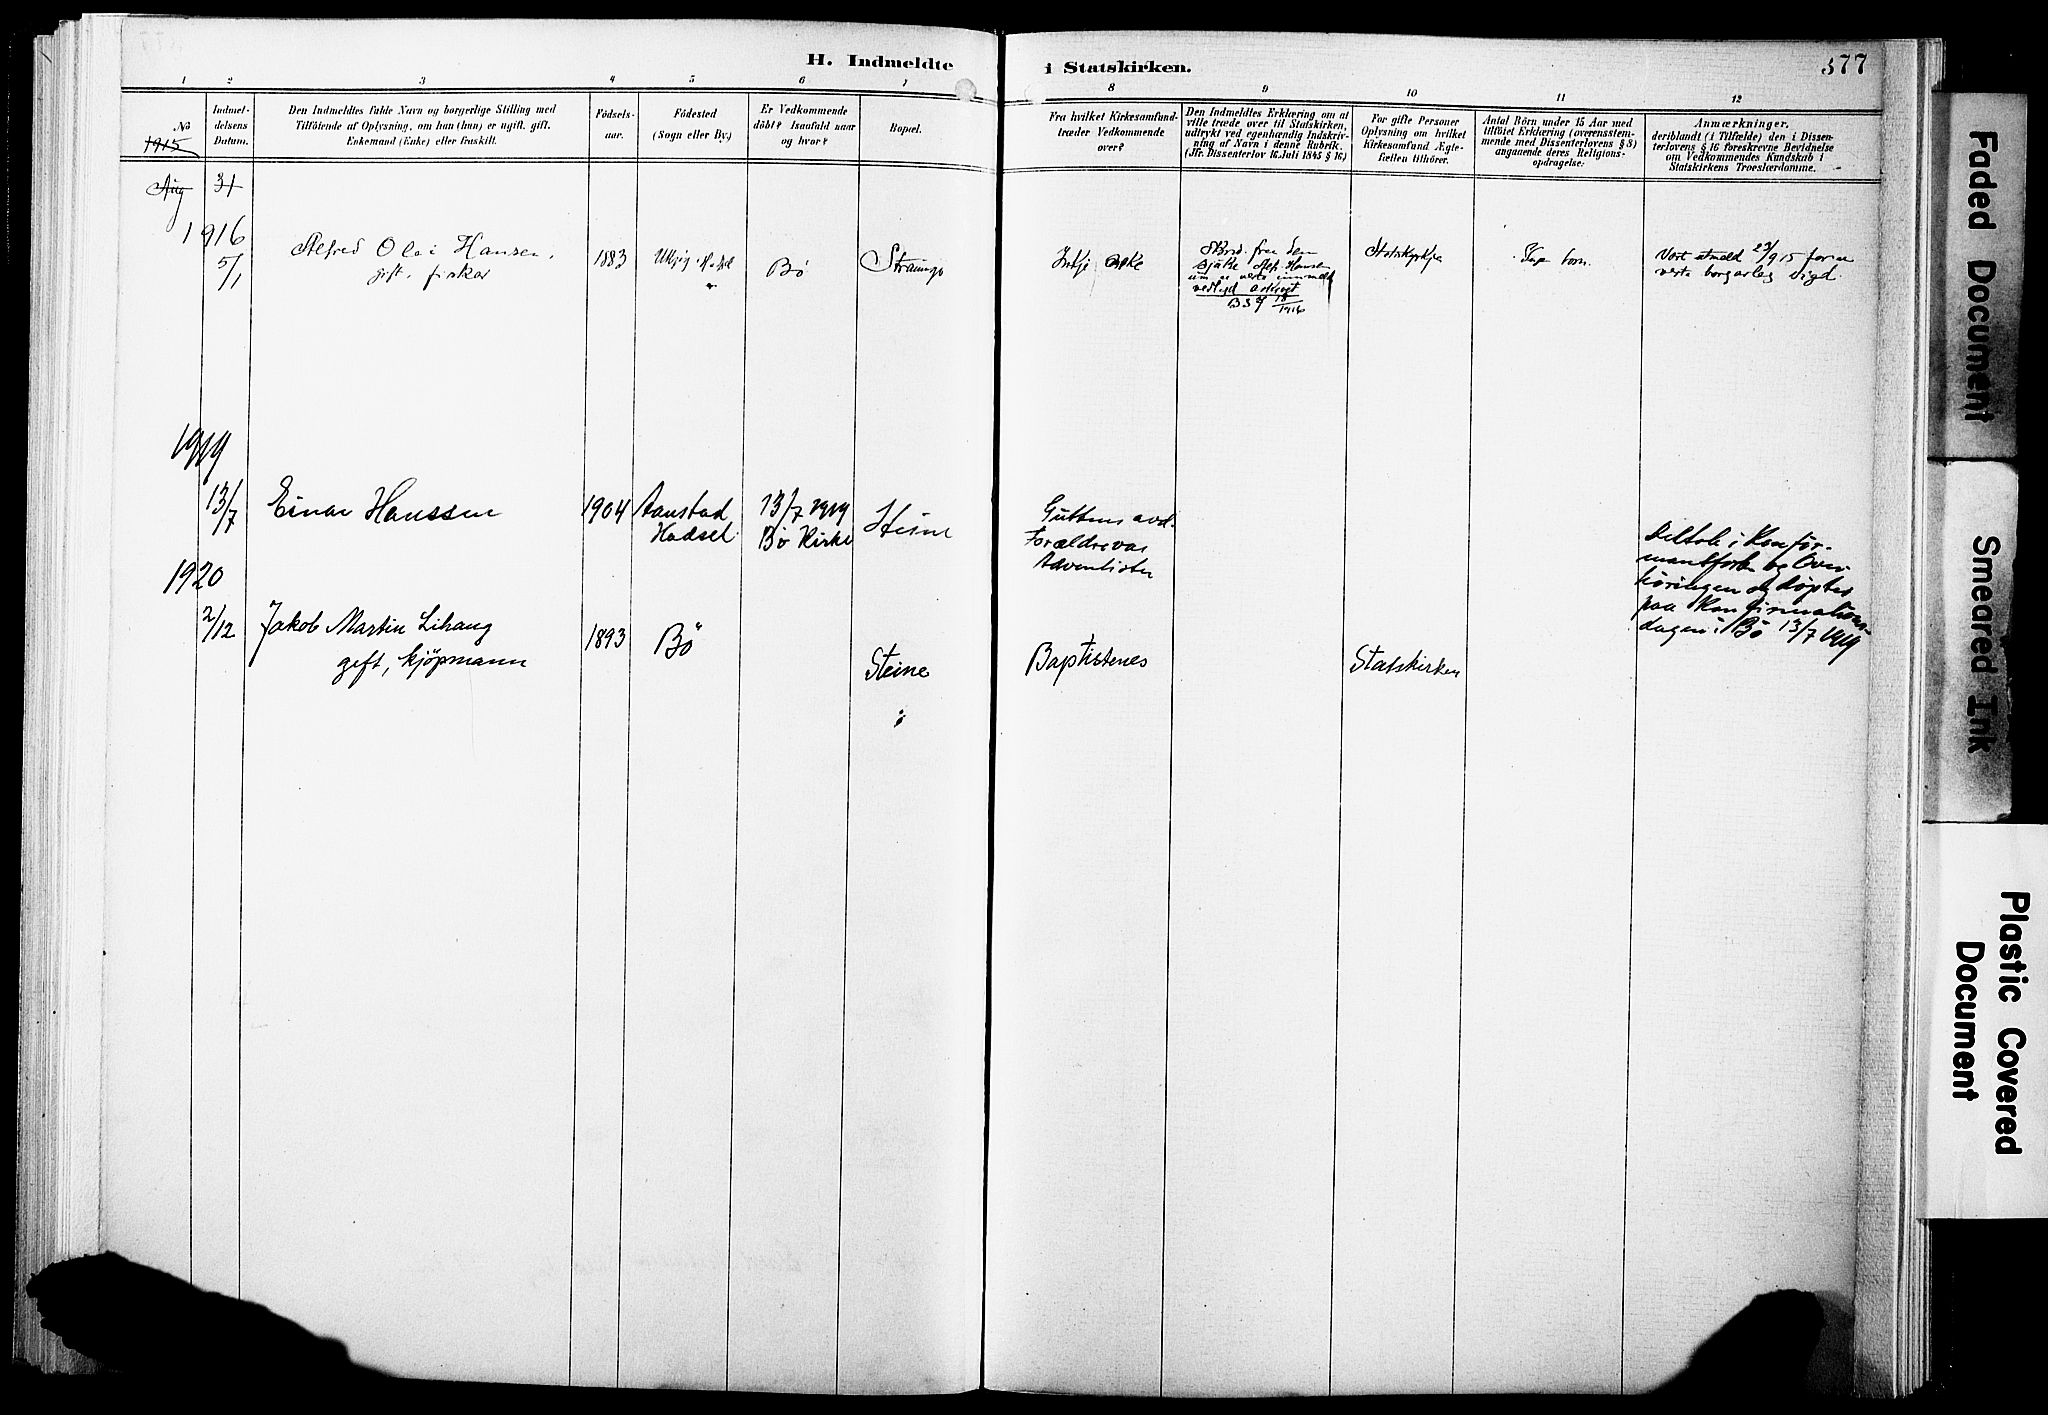 H. Indmeldte i Statskirken.
377
1 2 3 4 5 6 7 8 9 10 11 12
No
1915
Indmeldelsens Datum.
Den Indmeldtes fulde Navn og borgerlige Stilling med
Tilföiende af Oplysning, om han (hun) er ugift, gift,
Enkemand (Enke) eller fraskilt.
Födsels-
aar.
Födested
(Sogn eller By.)
Er Vedkommende
döbt? Isaafald naar
og hvor?
Bopæl.
Fra hvilket Kirkesamfund
træder Vedkommende
over?
Den Indmeldtes Erklæring om at
ville træde over til Statskirken,
udtrykt ved egenhændig Indskriv-
ning af Navn i denne Rubrik.
(Jfr. Dissenterlov 16 Juli 1845 § 16)
For gifte Personer
Oplysning om hvilket
Kirkesamfund Ægte-
fællen tilhörer.
Antal Börn under 15 Aar med
tilföiet Erklæring (overensstem-
mende med Dissenterlovens § 8)
angaaende deres Religions-
opdragelse.
Anmærkninger,
deriblandt (i Tilfælde) den i Dissen-
terlovens § 16 foreskrevne Bevidnelse
om Vedkommendes Kundskab i
Statskirkens Troeslærdomme.
Aug 31
1916
5/1
Alfred Olai Hansen,
gift, fiskar
1883
Hadsel
Bö
Straume
Inkje
fra den
sjuke Alf. Hansen
vedlagd
1916
Statskyrkja
born.
Vart utmeld 23/9 15 for aa
verta borgarleg vigd.
1919
13/7
Einar Hanssen
1904
Aanstad
Hadsel
13/7 1919
Bö Kirke
Steine
Guttens avd.
Forældre var
Adventister
Deltok i Konfir-
mantforb. og Over-
höringen og döptes
paa Konfirmations-
dagen i Bö 13/7 1919
1920
2/12
Jakob Martin Lihaug
gift, kjöpmann
1893
Bö
Steine
Baptistenes
Statskirken
Faded Document
Smeared Ink
Plastic Covered
Document